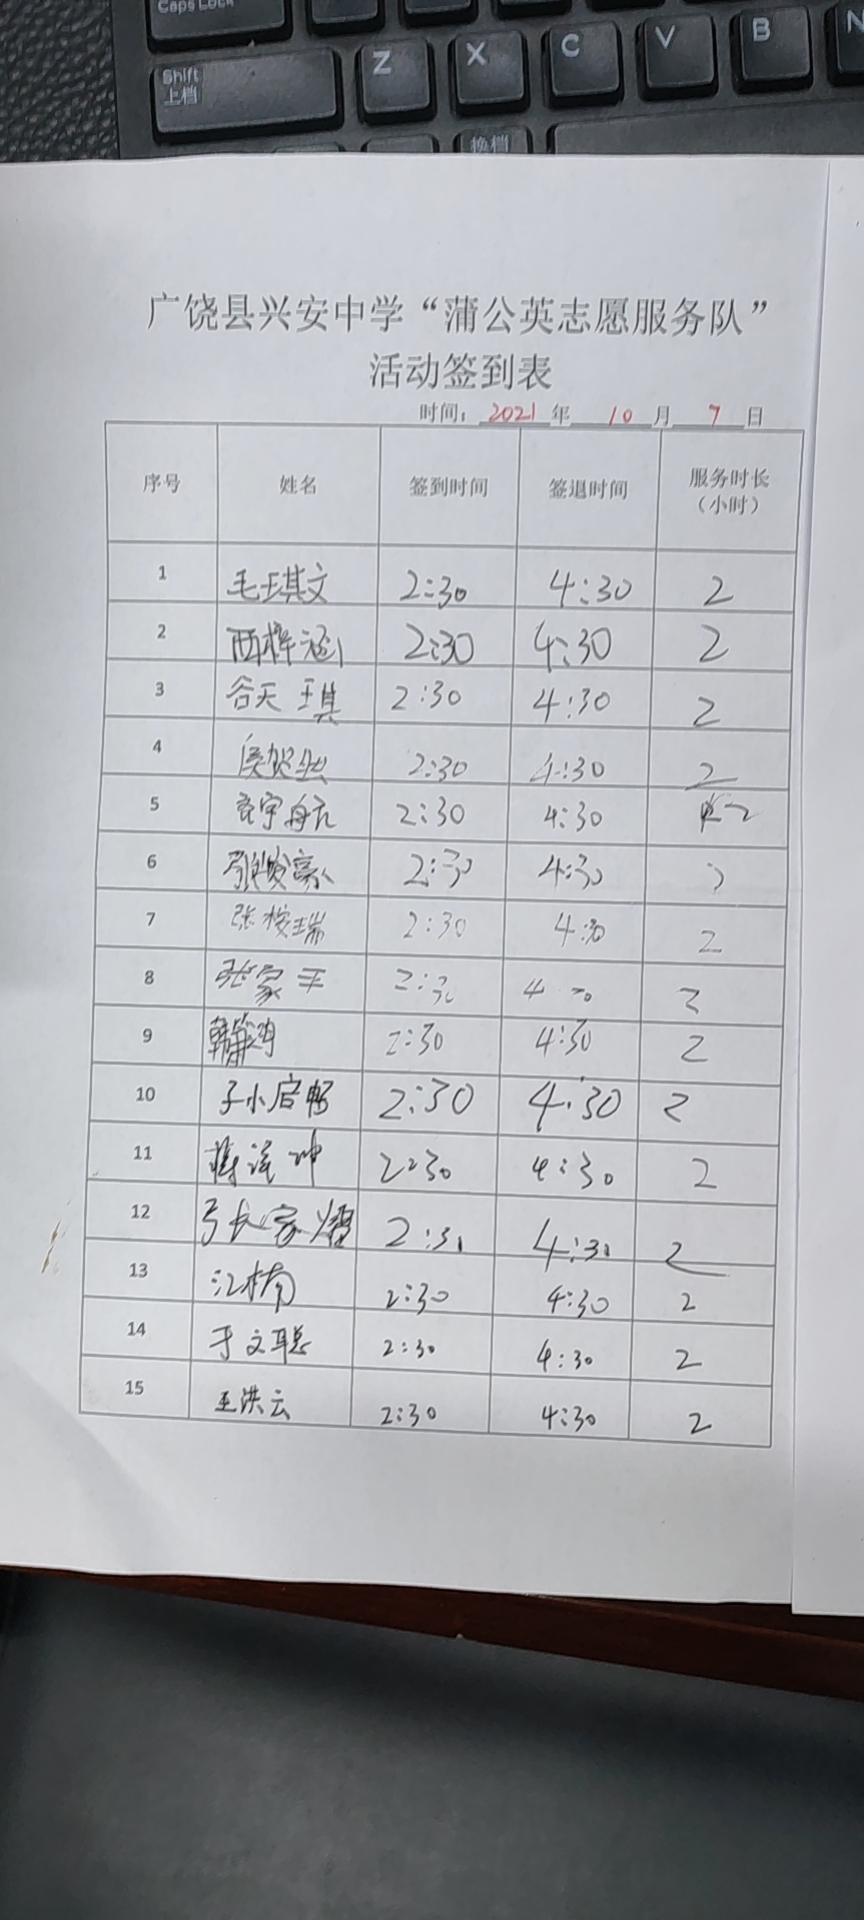 Caps Lock
Shift
上档
Z
X
C
V
B
N
换档
广饶县兴安中学“蒲公英志愿服务队”
活动签到表
时间：2021年 10月 7日
序号 姓名 签到时间 签退时间 服务时长（小时）
1 毛琪文 2:30 4:30 2
2 西梓涵 2:30 4:30 2
3 谷天琪 2:30 4:30 2
4 2:30 4:30 2
5 2:30 4:30 2
6 2:30 4:30 2
7 张桉瑞 2:30 4:30 2
8 张家 2:30 4 30 2
9 韩箫鸿 2:30 4:30 2
10 孙启畅 2:30 4:30 2
11 2:30 4:30 2
12 张家熠 2:30 4:30 2
13 江楠 2:30 4:30 2
14 于文聪 2:30 4:30 2
15 王洪云 2:30 4:30 2